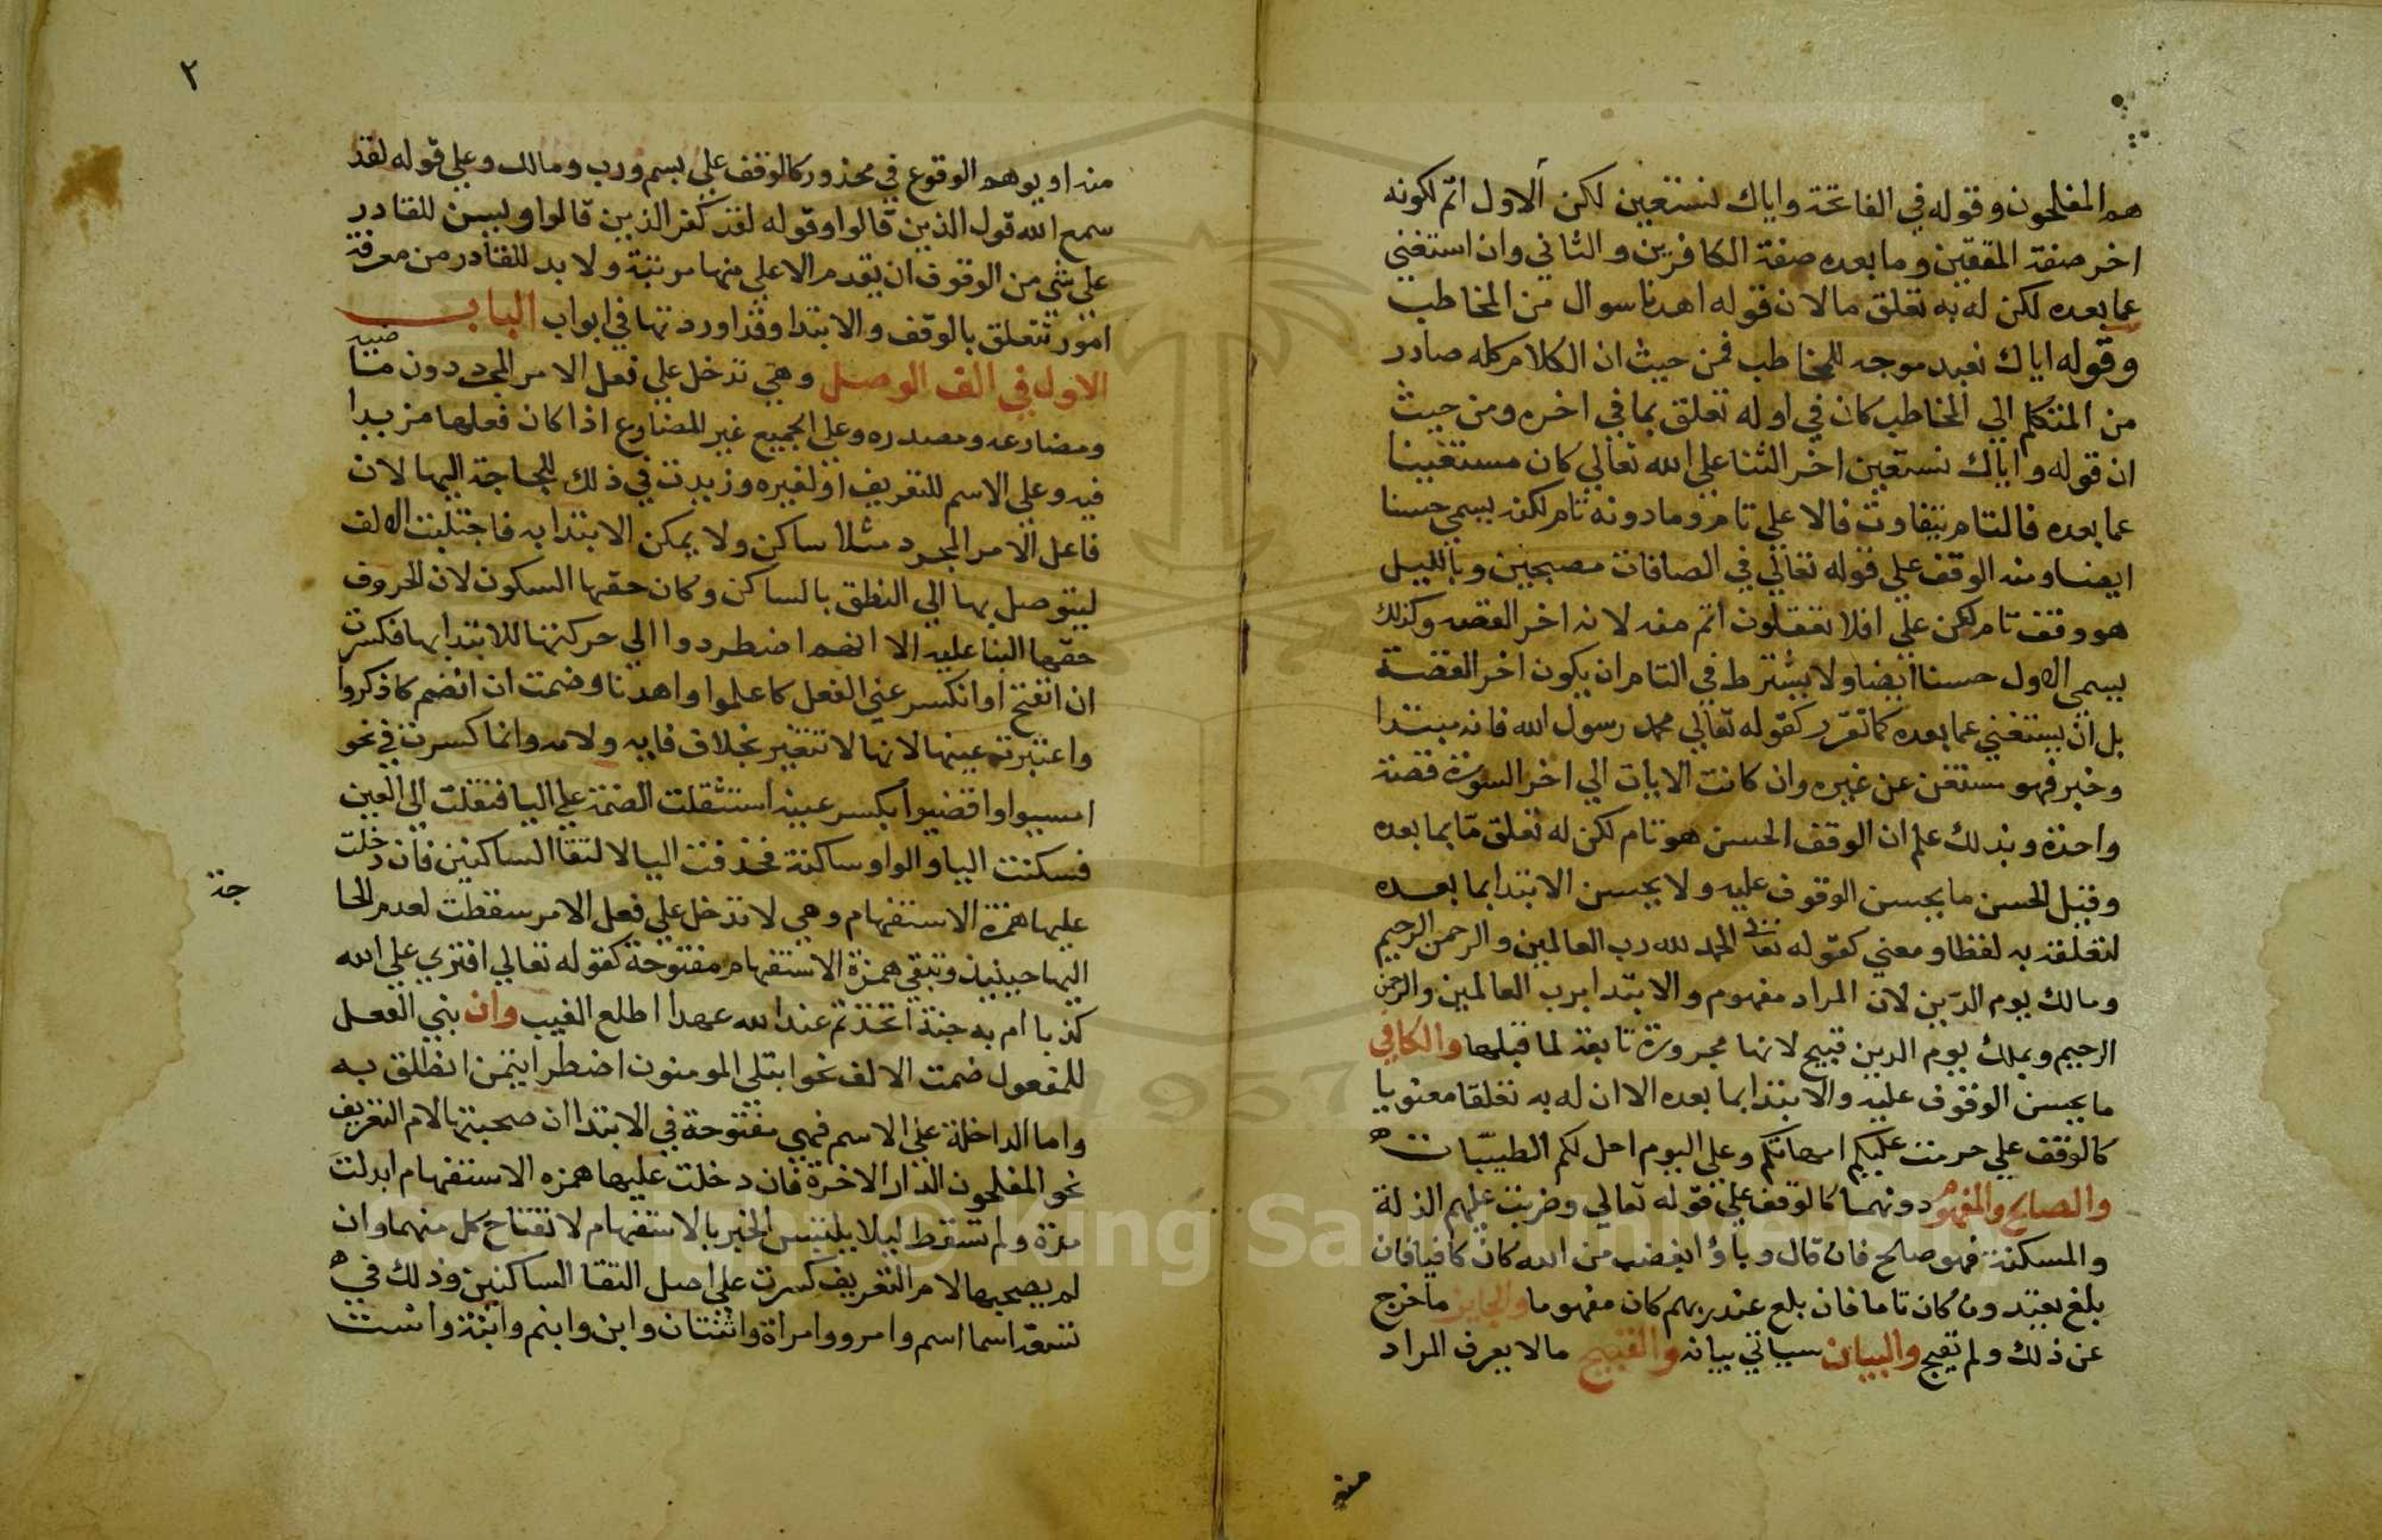 هم المفلحون وقوله في الفاتحة واياك نستعين لكن الاول اتم لكونه
اخر صفة المتقين وما بعده صفة الكافرين والثاني وان استغني
عما بعده لكن له به تعلق ما لان قوله اهدنا سوال من المخاطب
وقوله اياك نعبد موجه للمخاطب فمن حيث ان الكلام كله صادر
من المتكلم الي المخاطب كان في اوله تعلق بما في اخره ومن حيث
ان قوله واياك نستعين اخر الثنا علي الله تعالي كان مستغنيا
عما بعده فالتام يتفاوت فالاعلي تام وما دونه تام لكنه يسمي حسنا
ايضا ومنه الوقف علي قوله تعالي في الصافات مصبحين وبالليل
هو وقف تام لكن علي افلا تعقلون اتم منه لانه اخر القصه وكذلك
يسمي الاول حسنا ايضا ولا يشترط في التام ان يكون اخر القصة
بل ان يستغني عما بعده كما تقرر كقوله تعالي محمد رسول الله فانه مبتدا
وخبر فهو مستغن عن غيره وان كانت الايات الي اخر السورة قصة
واحدة وبذلك علم ان الوقف الحسن هو تام لكن له تعلق ما بما بعده
وقيل الحسن ما يحسن الوقوف عليه ولا يحسن الابتدا بما بعده
لتعلقه به لفظا ومعني كقوله تعالي الحمد لله رب العالمين والرحمن الرحيم
ومالك يوم الدين لان المراد مفهوم والابتدا برب العالمين والرحمن
الرحيم وبملك يوم الدين قبيح لانها مجرورة تابعة لما قبلها والكافي
ما يحسن الوقوف عليه والابتدا بما بعده الا ان له به تعلقا معنويا
كالوقف علي حرمت عليكم امهاتكم وعلي اليوم احل لكم الطيبات ه
والصالح والمفهوم دونهما كالوقف علي قوله تعالي وضربت عليهم الذلة
والمسكنة فهو صالح فان قال وباؤا بغضب من الله كان كافيا فان
بلغ يعتدون كان تاما فان بلغ عند ربهم كان مفهوما والجايز ما خرج
عن ذلك ولم يقبح والبيان سياتي بيانه والقبيح ما لا يعرف المراد
منه
٢
منه او يوهم الوقوع في محذور كالوقف علي بسم ورب ومالك وعلي قوله لقد
سمع الله قول الذين قالوا وقوله لقد كفر الذين قالوا وليس للقادر
علي شي من الوقوف ان يقدم الاعلي منها مرتبة ولا بد للقادر من معرفة
امور تتعلق بالوقف والابتدا وقد اوردتها في ابواب الباب
الاول في الف الوصل وهي تدخل علي فعل الامر المجرد دون ما
ومضارعه ومصدره وعلي الجميع غير المضارع اذا كان فعلها مزيدا
فيه وعلي الاسم للتعريف او لغيره وزيدت في ذلك للحاجة اليها لان
فاعل الامر المجرد مثلا ساكن ولا يمكن الابتدا به فاجتلبت الالف
ليتوصل بها الي النطق بالساكن وكان حقها السكون لان الحروف
حقها البنا عليه الا انهم اضطروا الي حركتها للابتدا بها فكسرت
ان انفتح او انكسر عين الفعل كاعلموا واهدنا وضمت ان انضم كاذكروا
واعتبرت عينها لانها لا تتغير بخلاف فايه ولامه وانما كسرت في نحو
امسيوا واقضيوا بكسر عينه استثقلت الضمة علي اليا فنقلت الي العين
فسكنت اليا والواو ساكنة فحذفت اليا لالتقا الساكنين فان دخلت
عليها همزة الاستفهام وهي لا تدخل علي فعل الامر سقطت لعدم الحا
جة
اليها حينيذ وتبقي همزة الاستفهام مفتوحة كقوله تعالي افتري علي الله
كذبا ام به جنة اتخذتم عند الله عهدا اطلع الغيب وان بني الفعل
للمفعول ضمت الالف نحو ابتلي المومنون اضطر ايتمن انطلق به
واما الداخلة علي الاسم فهي مفتوحة في الابتدا ان صحبتها لام التعريف
نحو المفلحون الدار الاخرة فان دخلت عليها همزه الاستفهام ابدلت
مدة ولم تسقط ليلا يلتبس الخبر بالاستفهام لانفتاح كل منهما وان
لم يصحبها لام التعريف كسرت علي اصل التقا الساكنين وذلك في ه
تسعة اسما اسم وامرو وامراة واثنتان وابن وابنم وابنة واست
Copyright © King Saud University
1957